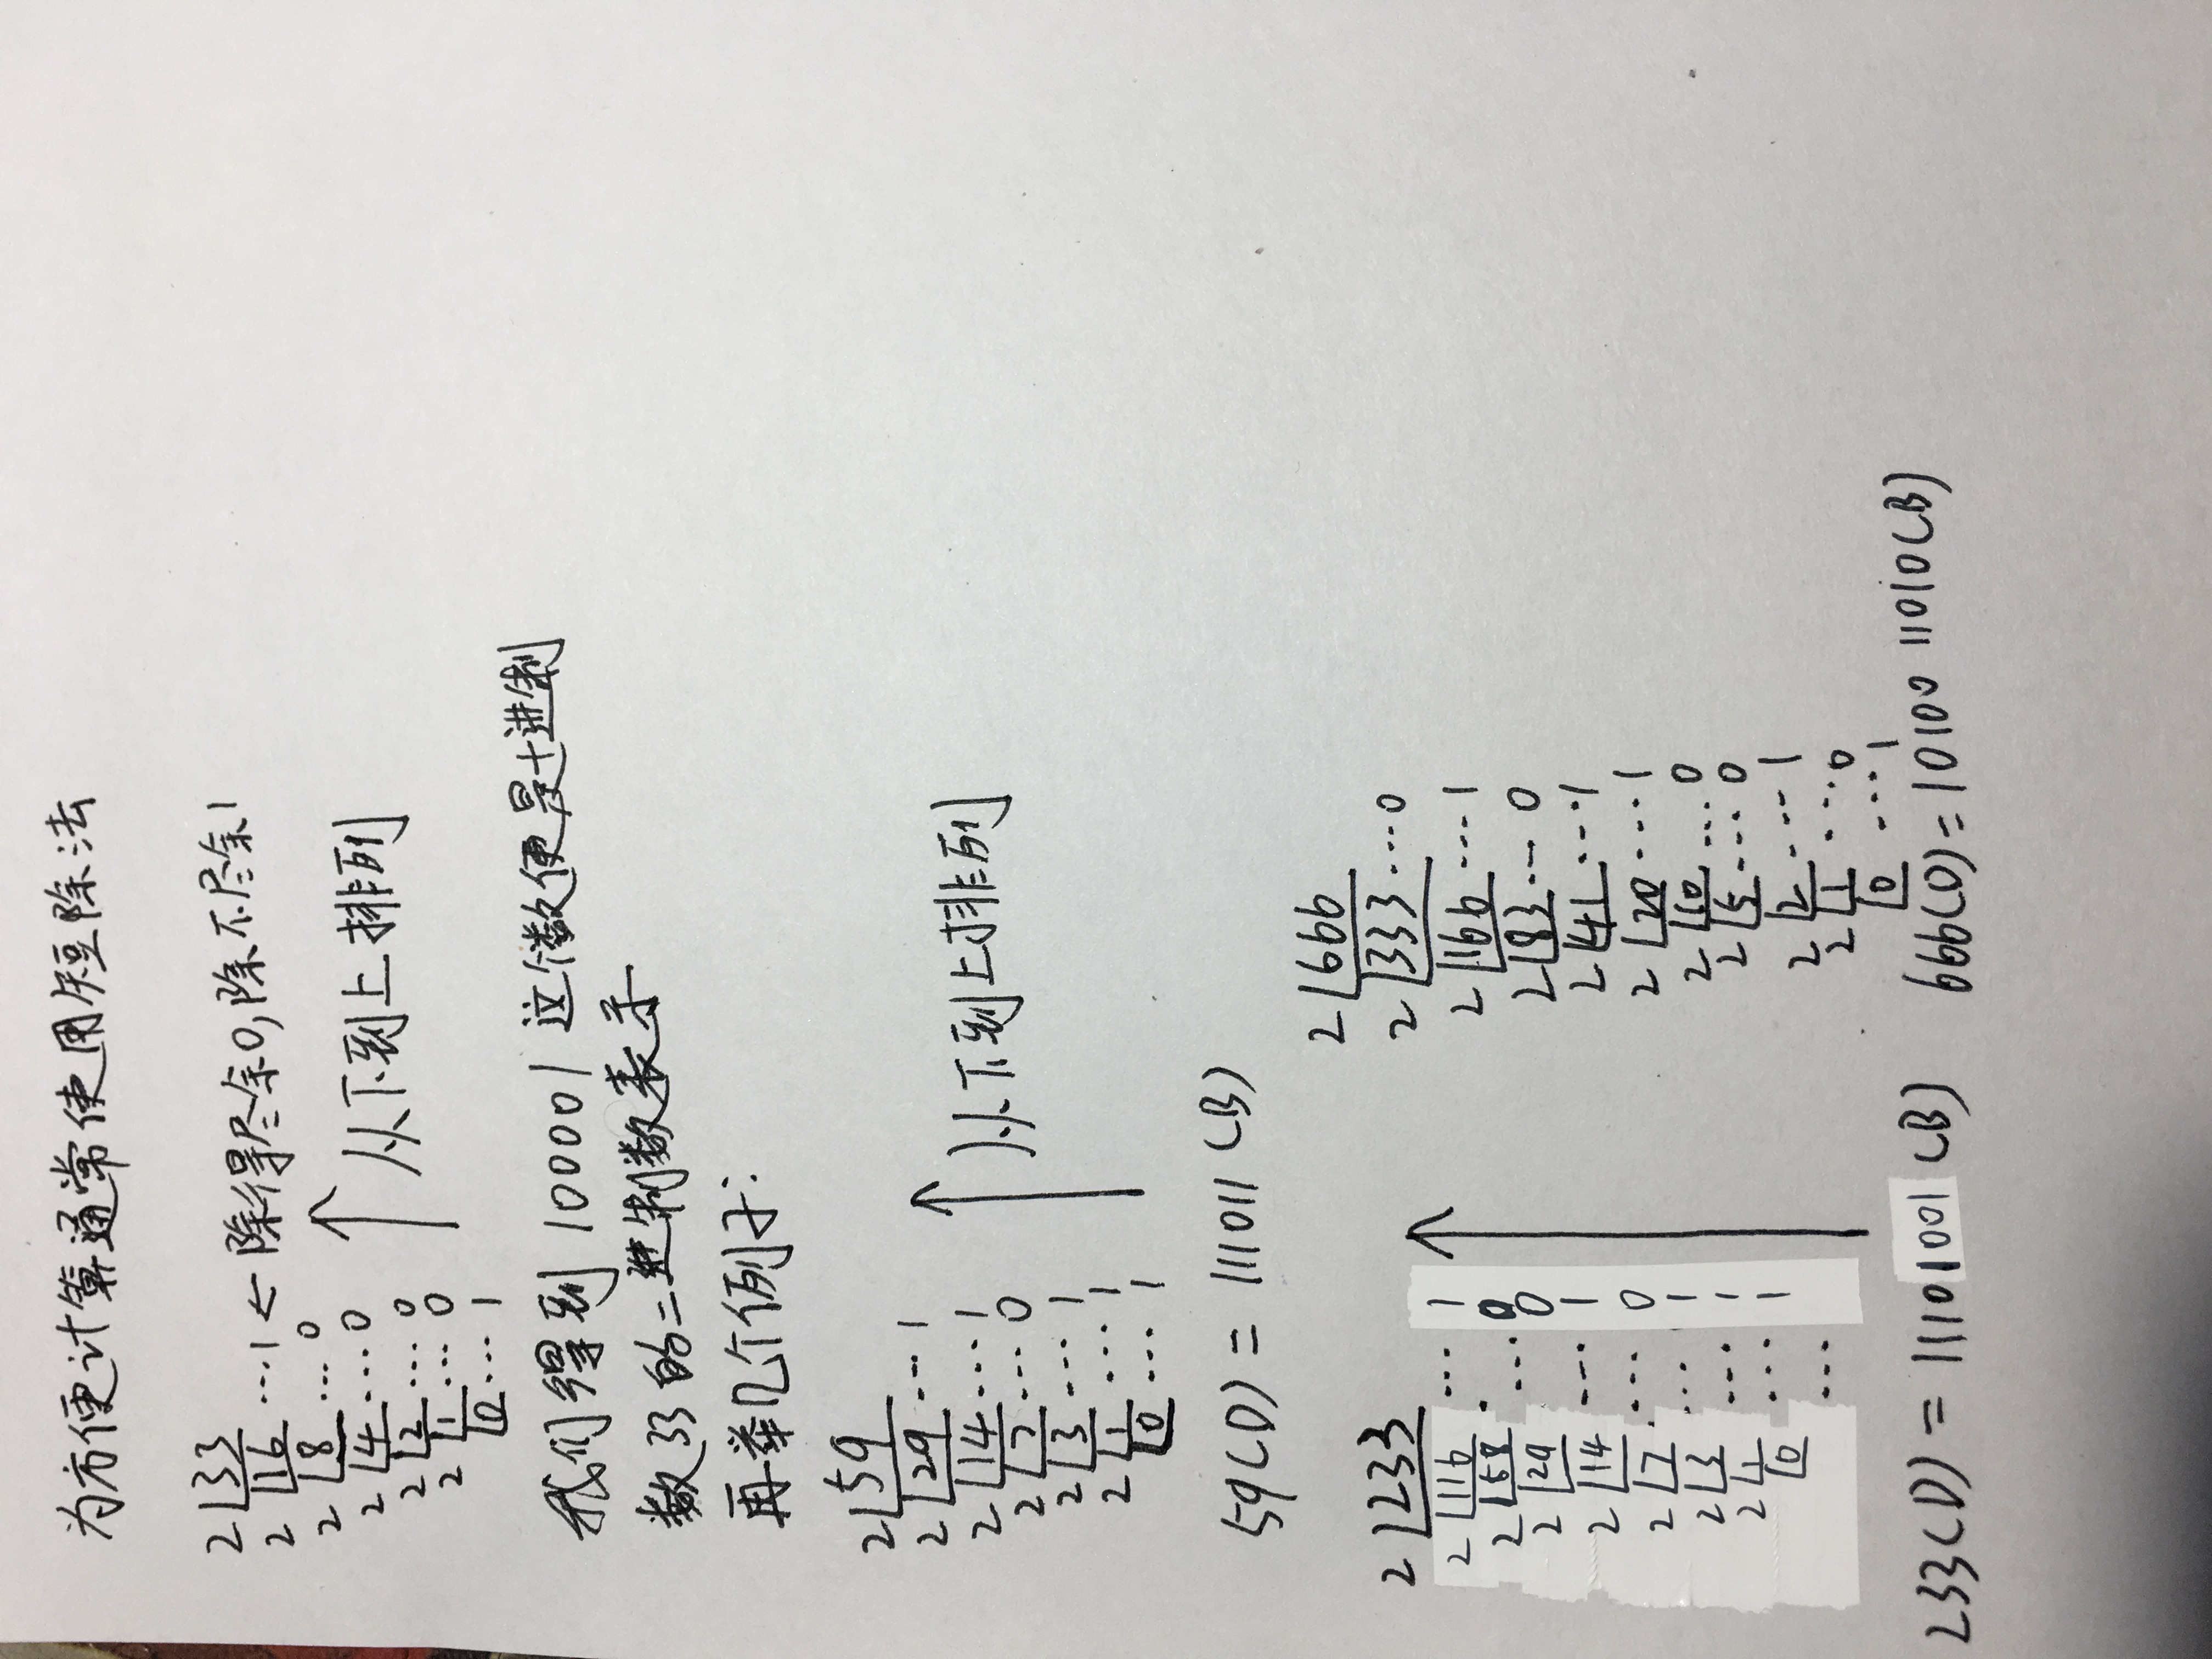 为方便计算通常使用短除法
2 33
2 16 …1 ← 除得尽余0,除不尽余1
2 8 … 0
2 4 … 0
2 2 … 0
2 1 … 0
0 … 1
从下到上排列
我们得到 100001 这个数便是十进制
数33的二进制数表示
再举几个例子:
2 59
2 29 … 1
2 14 … 1
2 7 … 0
2 3 … 1
2 1 … 1
0 … 1
从下到上排列
59(D) = 111011 (B)
2 233
2 116 … 1
2 58 … 0
2 29 … 0
2 14 … 1
2 7 … 0
2 3 … 1
2 1 … 1
0 … 1
233(D) = 11101001 (B)
2 666
2 333 … 0
2 166 … 1
2 83 … 0
2 41 … 1
2 20 … 1
2 10 … 0
2 5 … 0
2 2 … 1
2 1 … 0
0 … 1
666(D) = 10100 11010(B)